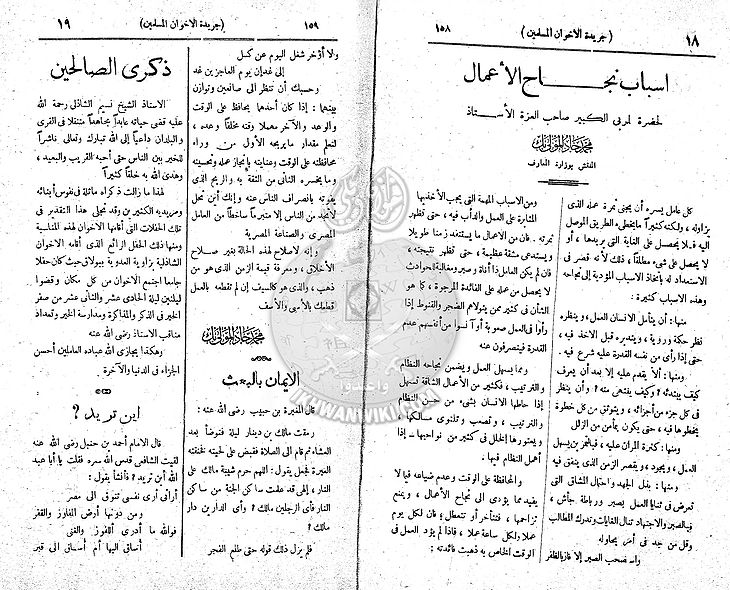 ١٨
( جريدة الاخوان المسلمين )
١٥٨
اسباب نجاح الأعمال
لحضرة المربي الكبير صاحب العزة الأستاذ
محمد جاد المولى بك
المفتش بوزارة المعارف
كل عامل يسره أن يجنى ثمرة عمله الذى
يزاوله ، ولكنه كثيراً ما يخطىء الطريق الموصل
اليه فلا يحصل على الغاية التى يريدها ، أو
لا يحصل على شىء مطلقاً ، ذلك لأنه قصر فى
الاستعداد له باتخاذ الأسباب المؤدية إلى نجاحه
وهذه الاسباب كثيرة :
منها : أن يتأمل الانسان العمل ، وينظره
نظر حكمة وروية ، ويتدبره قبل الاخذ فيه ،
حتى إذا رأى من نفسه القدرة عليه شرع فيه .
ومنها : ألا يقدم عليه إلا بعد أن يعرف
كيف يبتدئه ؟ وكيف ينتهى منه ؟ وأن ينظر
فى كل جزء من أجزائه ، ويتوثق من كل خطوة
يخطوها فيه ، حتى يكون بمأمن من الزلل
ومنها : كثرة المران عليه ، فبالتمرن يسهل
العمل ، ويجود ، ويقصر الزمن الذى ينفق فيه
ومنها : بذل الجهد واحتمال المشاق التى
تعرض فى ثنايا العمل بصبر ورباطة جأش ،
فبالصبر والاجتهاد تنال الغايات وتدرك المطالب
وقل من جد فى أمر يحاوله
واستصحب الصبر إلا فاز بالظفر
ومن الاسباب المهمة التى يجب الأخذ بها
المثابرة على العمل والدأب فيه ، حتى تظهر
ثمرته . فان من الأعمال ما يستنفد زمنا طويلا
ويستدعى مشقة عظيمة ، حتى تظهر نتيجته ،
فان لم يكن العامل ذا أناة وصبر ومغالبة للحوادث
لا يحصل من عمله على الفائدة المرجوة ، كما هو
الشأن فى كثير ممن يتولاهم الضجر والقنوط إذا
رأوا فى العمل صعوبة أو آنسوا من أنفسهم عدم
القدرة فينصرفون عنه
ومما يسهل العمل ويضمن نجاحه النظام
والترتيب ، فكثير من الأعمال الشاقة تسهل
إذا حاطها الانسان بشىء من حسن النظام
والترتيب ، وتصعب وتلتوى مسالكها ،
ويعتورها الخلل فى كثير من نواحيها ــ إذا
أهمل النظام فيها .
والمحافظة على الوقت وعدم ضياعه فيما لا
يفيد مما يؤدى الى نجاح الأعمال ، ويمنع
تزاحمها ، فتتأخر أو تتعطل ؛ فان لكل يوم
عملا ولكل ساعة عملا ، فاذا لم يؤد العمل فى
الوقت الخاص به ذهبت فائدته :
١٥٩
( جريدة الاخوان المسلمين )
١٩
ولا أؤخر شغل اليوم عن كسل
إلى غد إن يوم العاجزين غد
وحسبك أن تنظر الى صانعين وتوازن
بينهما : إذا كان أحدهما يحافظ على الوقت
والوعد والآخر مهملا وقته مخلفاً وعده ،
لتعلم مقدار ما يربحه الأول من وراء
محافظته على الوقت وعنايته بانجاز عمله وتحسينه
وما يخسره الثانى من الثقة به والربح الذى
يفوته بانصراف الناس عنه وإنك أين تحل
لا تجد من الناس إلا متبرما ساخطاً من العامل
المصرى والصناعة المصرية
وإنه لاصلاح لهذه الحالة بغير صلاح
الأخلاق ، ومعرفة قيمة الزمن الذى هو من
ذهب ، والذى هو كالسيف إن لم تقطعه بالعمل
قطعك بالألم والأسف
محمد جاد المولى بك
الإيمان بالبعث
قال المغيرة بن حبيب رضى الله عنه :
رمقت مالك بن دينار ليلة فتوضأ بعد
العشاء ثم قام الى الصلاة فقبض على لحيته فخنقته
العبرة فجعل يقول : اللهم حرم شيبة مالك على
النار ، إلهى قد علمت ساكن الجنة من ساكن
النار فأى الرجلين مالك ؟ وأى الدارين دار
مالك ؟
فلم يزل ذلك قوله حتى طلع الفجر
ذكرى الصالحين
الاستاذ الشيخ نسيم الشاذلى رحمة الله
عليه قضى حياته عابداً مجاهداً متنقلا فى القرى
والبلدان داعياً إلى الله تبارك وتعالى ناشراً
للخير بين الناس حتى أحبه القريب والبعيد ،
وهدى الله به خلقاً كثيراً
لهذا ما زالت ذكراه ماثلة فى نفوس أبنائه
ومريديه الكثيرين وقد تجلى هذا التقدير فى
تلك الحفلات التى أقامها الاخوان لهذه المناسبة
ومنها ذلك الحفل الرائع الذى أقامه الاخوان
الشاذلية بزاوية العدوية ببولاق حيث كان حفلا
جامعا اجتمع الاخوان من كل مكان وقضوا
ليلتين ليلة الحادى عشر والثانى عشر من صفر
الخير فى الذكر والمذاكرة ومدارسة الخير وتعداد
مناقب الاستاذ رضى الله عنه
وهكذا يجازى الله عباده العاملين أحسن
الجزاء فى الدنيا والآخرة
اين تريد ؟
قال الامام أحمد بن حنبل رضى الله عنه
لقيت الشافعى قدس الله سره فقلت يا أبا عبد
الله أين تريد ؟ فأنشأ يقول :
أرانى أرى نفسى تتوق الى مصر
ومن دونها أرض المفاوز والقفر
فوالله ما أدرى أللفوز والغنى
أساق اليها أم أساق الى قبر
IKHWANWIKI.COM
وأعدوا